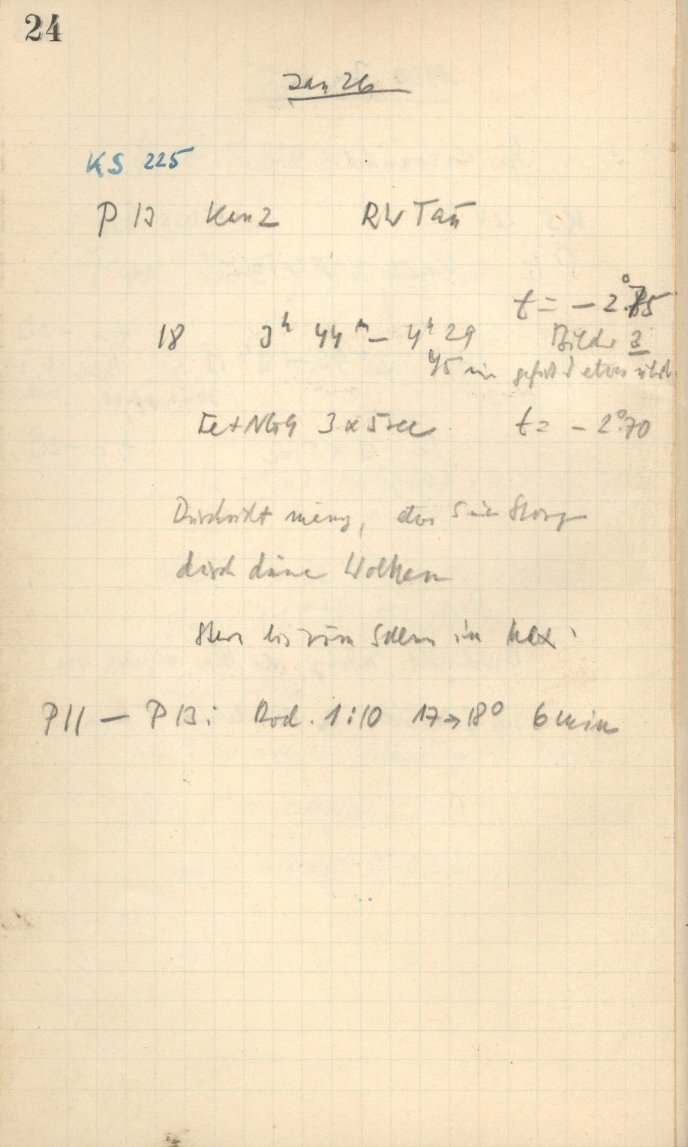 24
Jan 26
KS 225
P 13 Kan 2 RW Tau
t = - 2°.75
18 3h 44m - 4h 29 Bild. 3
45 min etwas
Fe + 3 x 5 sec t = - 2°.70
Durchsicht mäßig, der
durch dünne Wolken
Stern bis zum im
P11 - P13: Rod. 1:10 17→18° 6 min